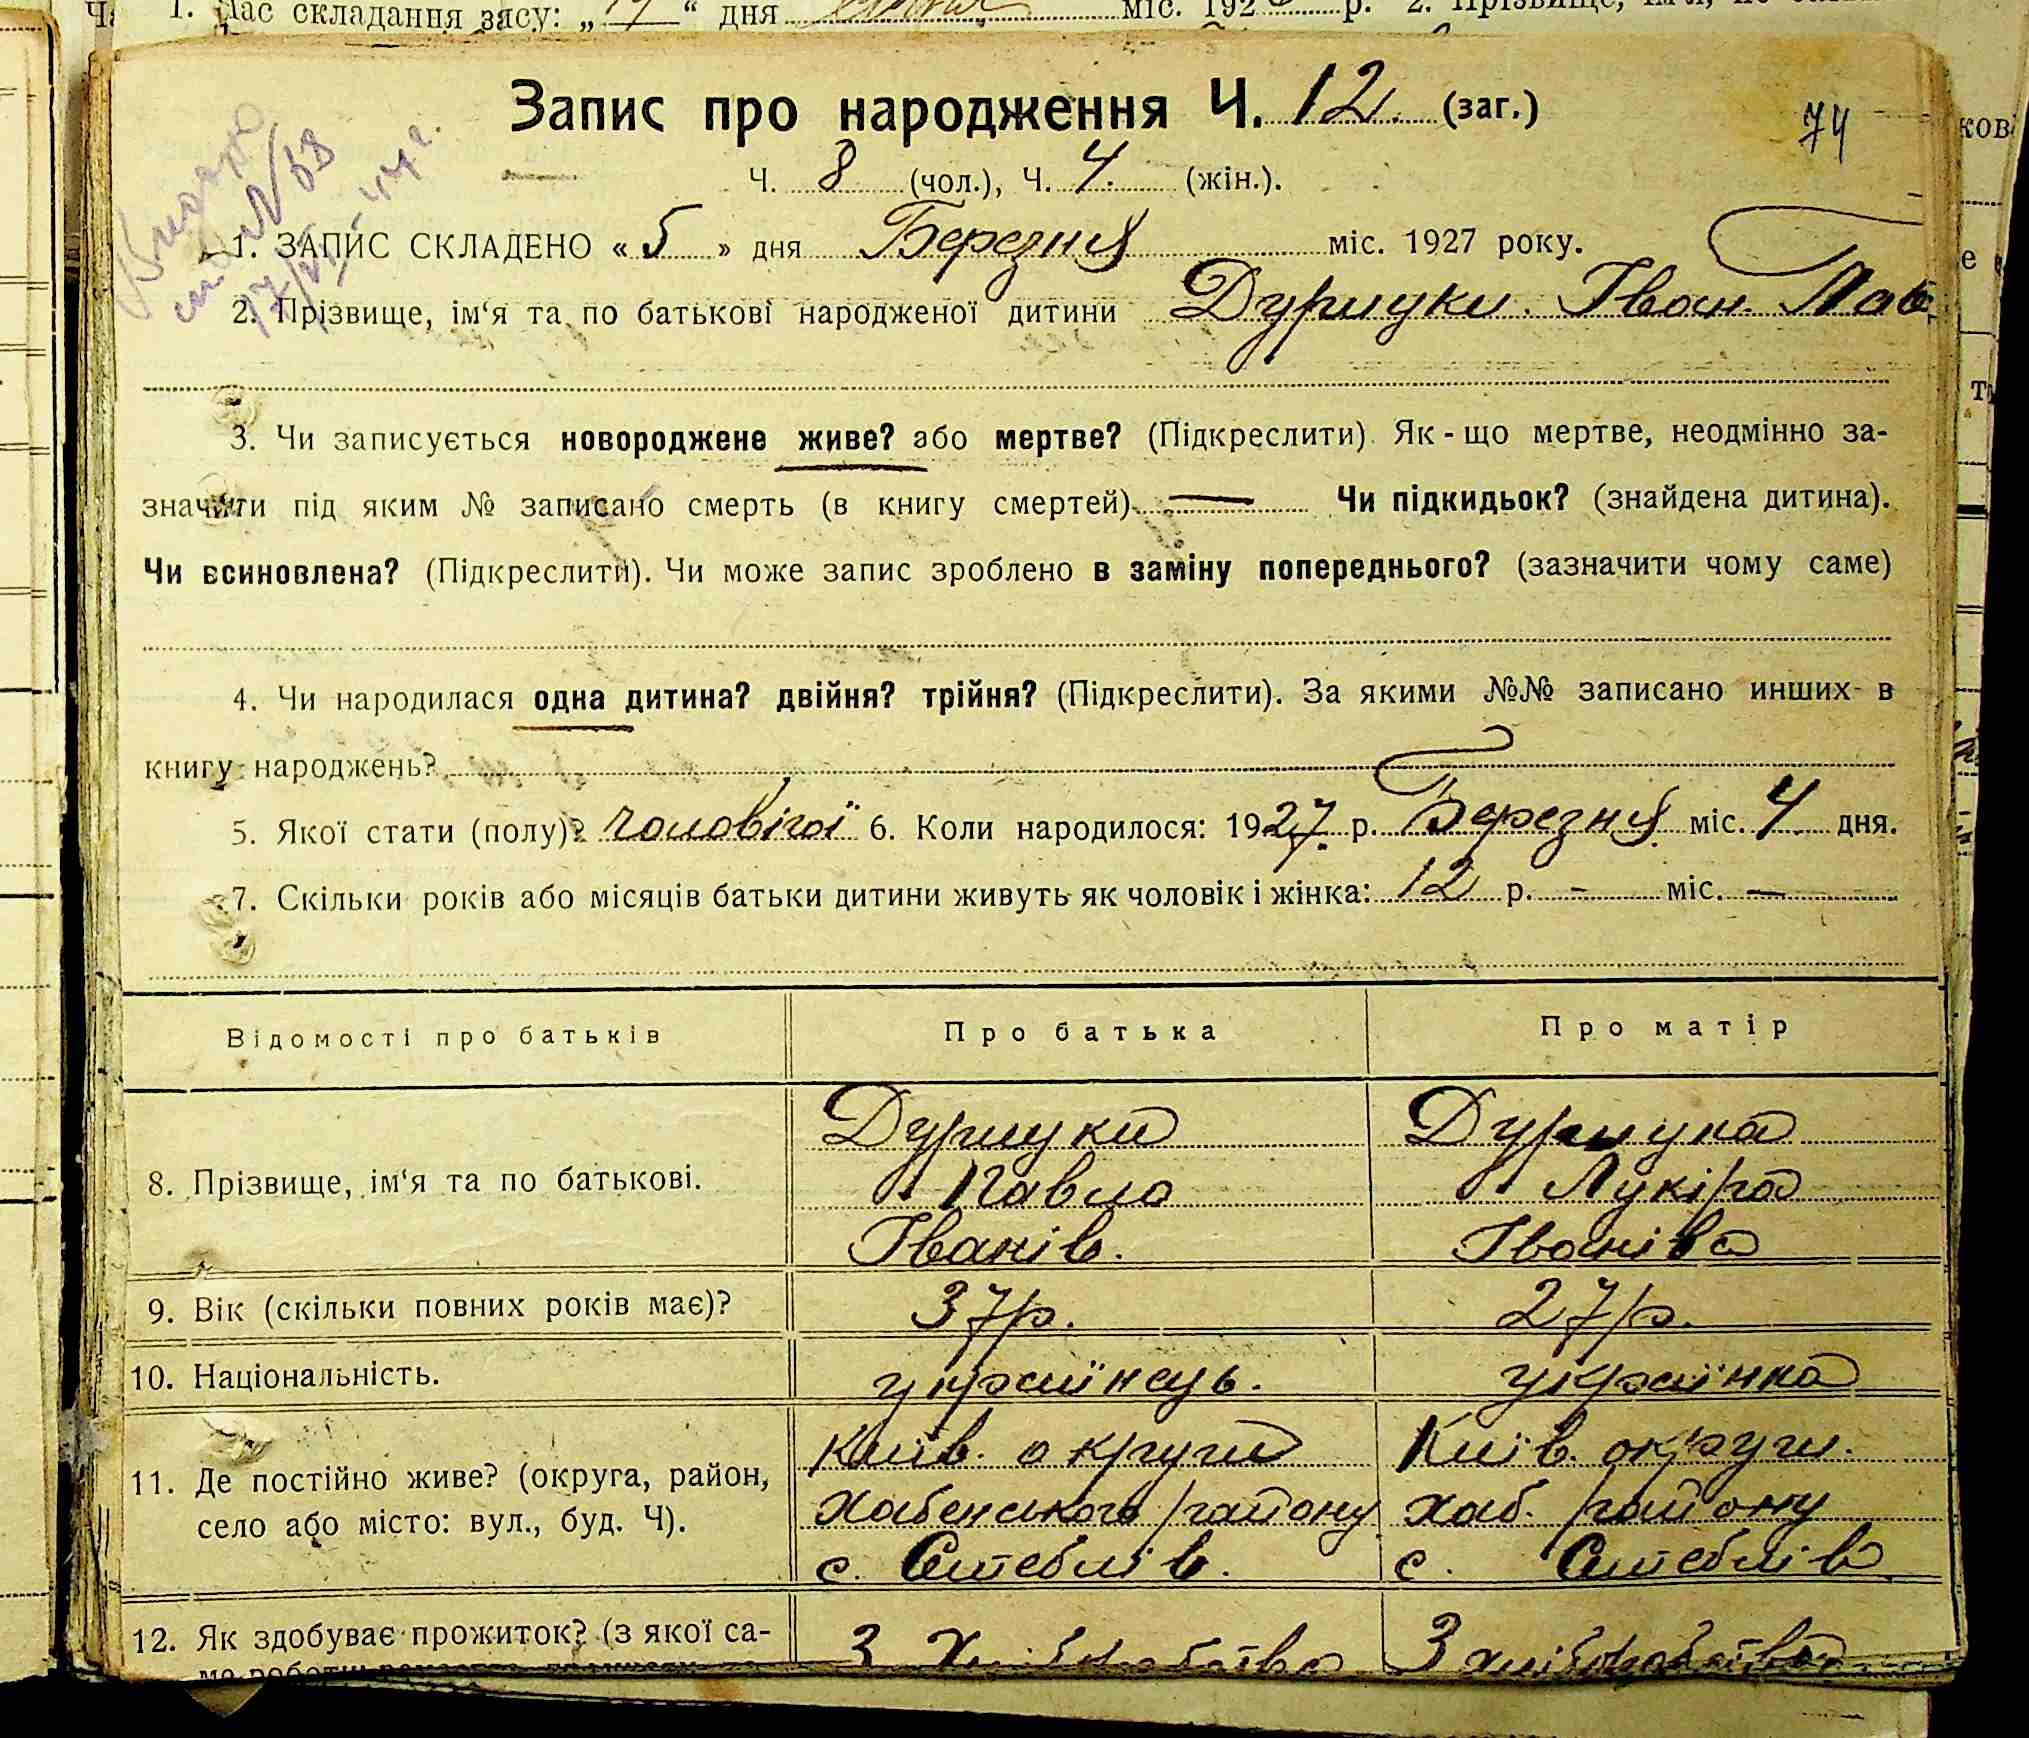 1. Час складання запису: „ 17 “ дня міс. 192 р. 2.
Запис про народження Ч. 12. (заг.)
74
Ч. 8 (чол.), Ч. 4. (жін.).
1. ЗАПИС СКЛАДЕНО « 5 » дня Березня міс. 1927 року.
2. Прізвище, ім‘я та по батькові народженої дитини Іван. Пав
3. Чи записується новороджене живе? або мертве? (Підкреслити) Як-що мертве, неодмінно за-
значити під яким № записано смерть (в книгу смертей) — Чи підкидьок? (знайдена дитина).
Чи всиновлена? (Підкреслити). Чи може запис зроблено в заміну попереднього? (зазначити чому саме)
4. Чи народилася одна дитина? двійня? трійня? (Підкреслити). За якими №№ записано инших в
книгу народжень?
5. Якої стати (полу)? чоловічої 6. Коли народилося: 1927. р. Березня міс. 4 дня.
7. Скільки років або місяців батьки дитини живуть як чоловік і жінка: 12 р. - міс. —
Відомості про батьків Про батька Про матір
8. Прізвище, ім‘я та по батькові.
Павло Лукіра
Іванів. Іванівa
9. Вік (скільки повних років має)? 37р. 27р.
10. Національність. українець. українка
11. Де постійно живе? (округа, район, село або місто: вул., буд. Ч).
Київ. округи Київ. округи.
Хабенського району Хаб. району
с. с.
12. Як здобуває прожиток? (з якої са- З Хліборобства З хліборобства